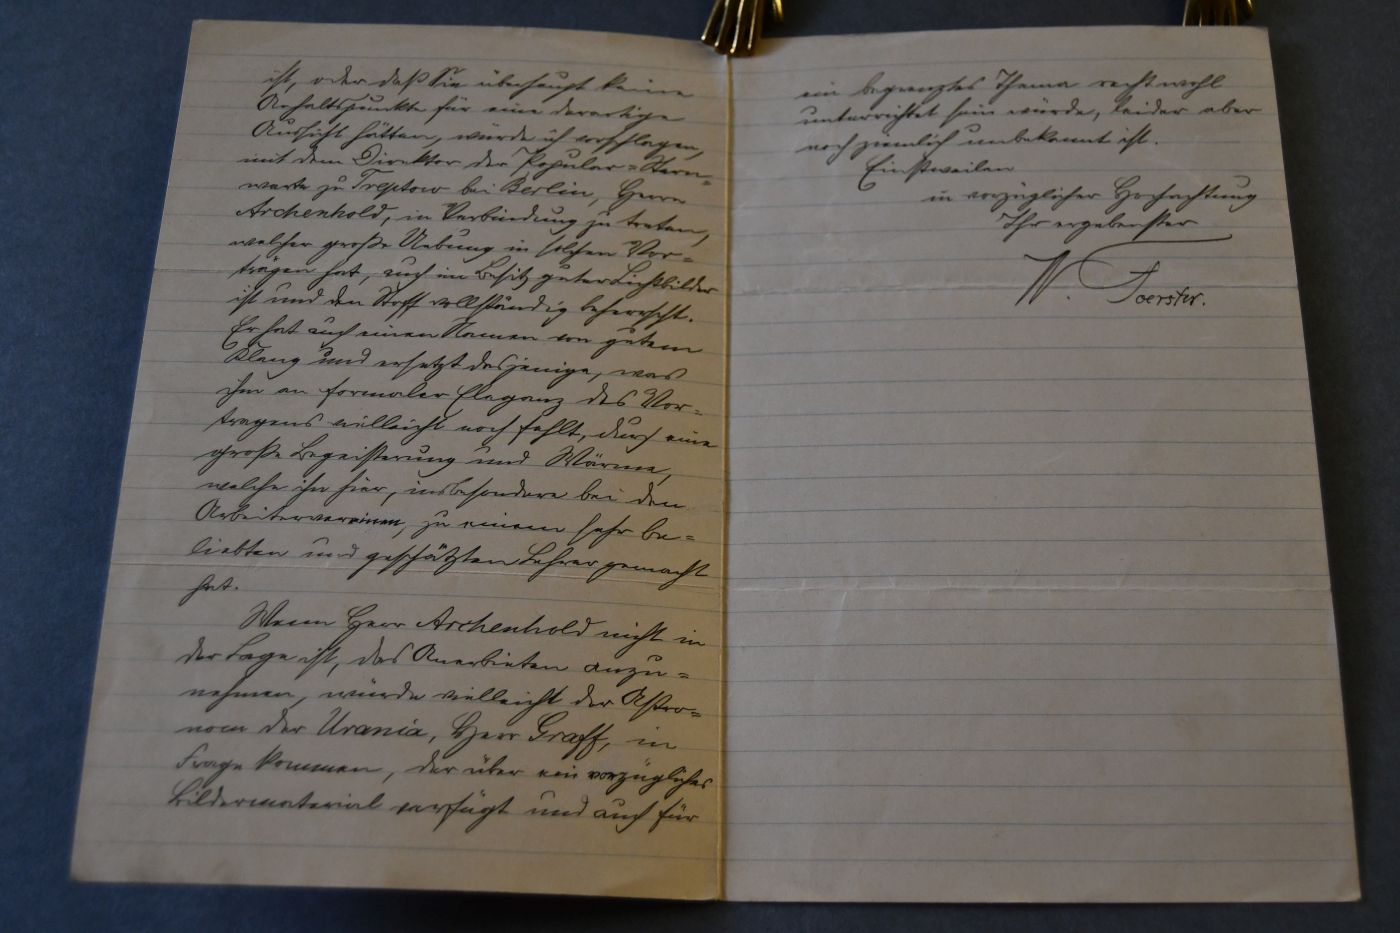 ist, oder daß Sie überhaupt keine
Anhaltspunkte für eine derartige
Aussicht hätten, würde ich vorschlagen,
mit dem Direktor der Popular-Stern-
warte zu Treptow bei Berlin, Herrn
Archenhold, in Verbindung zu treten,
welcher große Uebung in solchen Vor-
trägen hat, auch im Besitz guter Lichtbilder
ist und den Stoff vollständig beherrscht.
Er hat auch einen Namen von gutem
Klang und ersetzt dasjenige, was
ihm an formaler Eleganz des Vor-
tragens vielleicht noch fehlt, durch eine
große Begeisterung und Wärme,
welche ihn hier, insbesondere bei den
Arbeitervereinen, zu einem sehr be-
liebten und geschätzten Lehrer gemacht
hat.
Wenn Herr Archenhold nicht in
der Lage ist, das Anerbieten anzu-
nehmen, würde vielleicht der Astro-
nom der Urania, Herr Graff, in
Frage kommen, der über ein vorzügliches
Bildermaterial verfügt und auch für
ein begrenztes Thema recht wohl
unterrichtet sein würde, leider aber
noch ziemlich unbekannt ist.
Einstweilen
in vorzüglicher Hochachtung
Ihr ergebenster
W. Foerster.